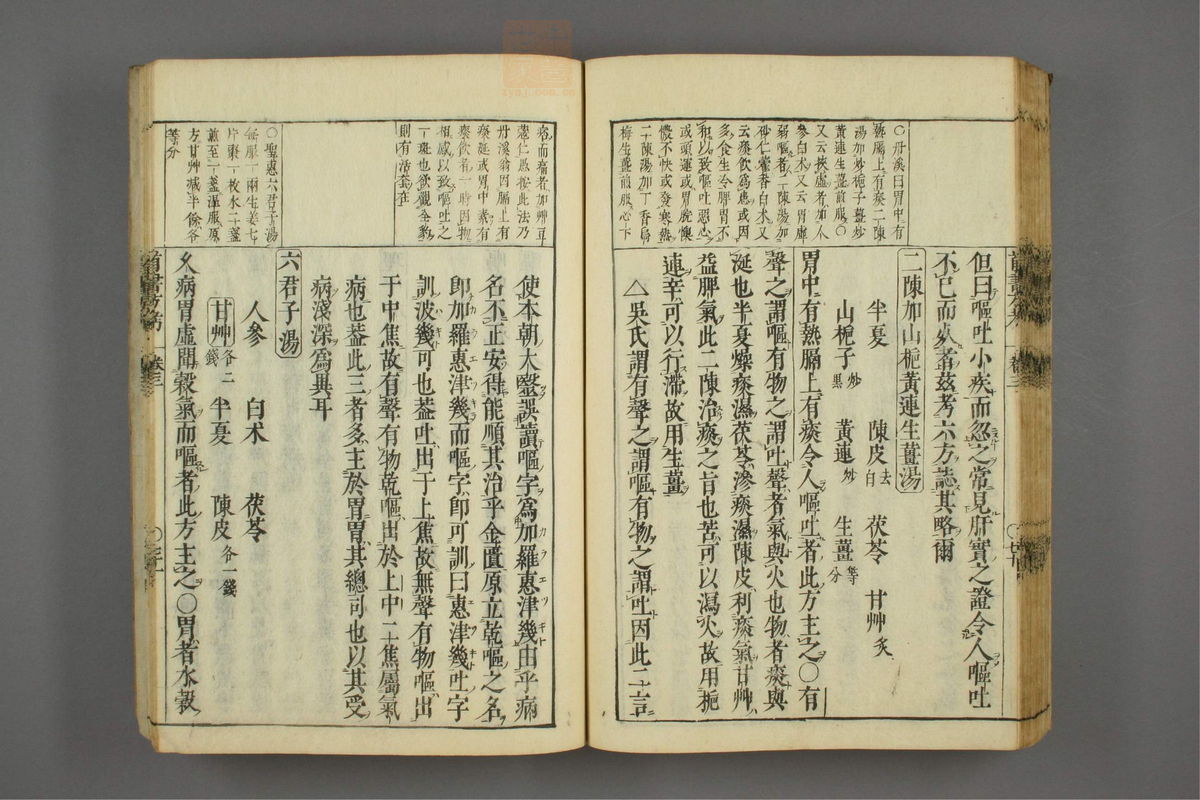 ○丹溪曰胃中有
熱膈上有痰二陳
湯加炒梔子薑炒
黃連生薑煎服○
又云挾虛者加人
參白朮又云胃虛
弱嘔者二陳湯加
砂仁藿香白朮又
云痰飲爲患或因
多食生冷脾胃不
和以致嘔吐惡心
或頭運或胃脘懊
憹不快或發寒熱
二十陳湯加丁香烏
梅生薑煎服心下
但曰嘔吐小疾而忽之常見肝實之證令人嘔吐
不已而死者茲考六方誌其略爾
二陳加山梔黃連生薑湯
半夏 陳皮去白 茯苓 甘艸炙
山梔子炒黑 黃連炒 生薑等分
胃中有熱膈上有痰令人嘔吐者此方主之○有
聲之謂嘔有物之謂吐聲者氣與火也物者痰與
涎也半夏燥痰濕茯苓滲痰濕陳皮利痰氣甘艸
益脾氣此二陳治痰之旨也苦可以瀉火故用梔
連辛可以行滯故用生薑
△吳氏謂有聲之謂嘔有物之謂吐因此二言
痞而痛者加艸豆
蔲仁愚按此法乃
丹溪翁因膈上有
痰延或胃中素有
痰飲者一時因物
相感以致嘔吐之
一斑也欲觀全豹
則有活套在
○聖惠六君子湯
每服一兩生姜七
片棗一枚水二盞
煎至一盞溫服原
方甘艸減半餘各
等分
使本朝大醫誤讀嘔字爲加羅惠津幾由乎病
名不正安得能順其治乎金匱原立乾嘔之名
即加羅惠津幾而嘔字即可訓曰惠津幾吐字
訓波幾可也蓋吐出于上焦故無聲有物嘔出
于中焦故有聲有物乾嘔出於上中二焦屬氣
病也蓋此三者多主於胃胃其總司也以其受
病淺深爲異耳
六君子湯
人參 白朮 茯苓
甘艸各二錢 半夏 陳皮各一錢
久病胃虛聞穀氣而嘔者此方主之○胃者水穀